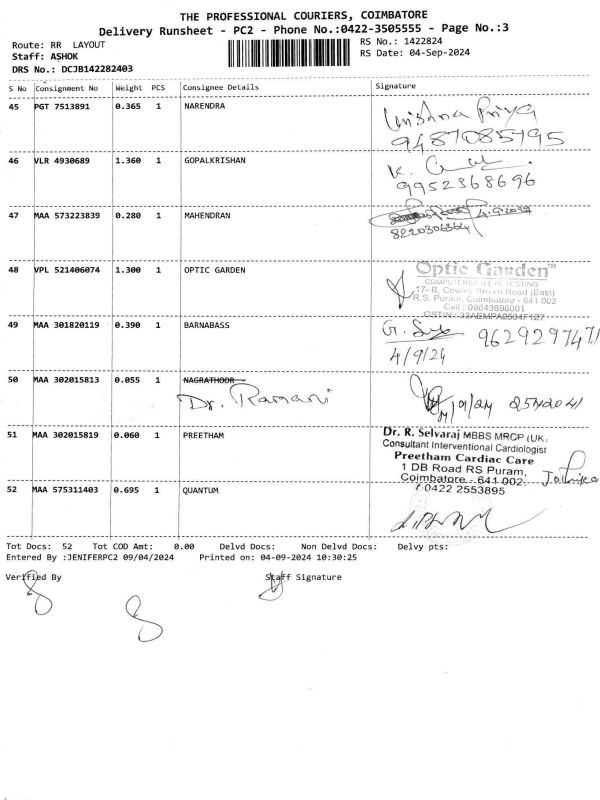 THE PROFESSIONAL COURIERS, COIMBATORE
Delivery Runsheet - PC2 - Phone No.:0422-3505555 - Page No.:3
Route: RR LAYOUT
Staff: ASHOK
DRS No.: DCJB142282403
RS No.: 1422824
RS Date: 04-Sep-2024
S No Consignment No Weight PCS Consignee Details Signature
45 PGT 7513891 0.365 1 NARENDRA
Krishna Priya
9487085795
46 VLR 4930689 1.360 1 GOPALKRISHAN
9952368696
47 MAA 573223839 0.280 1 MAHENDRAN
8220306364
48 VPL 521406074 1.300 1 OPTIC GARDEN
Optic Garden™
COMPUTERISED EYE TESTING
17- B, Cowley Brown Road (East)
R.S. Puram, Coimbatore - 641 002
Cell : 09843696001
GSTIN : 33AEMPA2504F1Z7
49 MAA 301820119 0.390 1 BARNABASS
9629297471
4/9/24
50 MAA 302015813 0.055 1 NAGRATHOOR
Dr. Ramani
51 MAA 302015819 0.060 1 PREETHAM
Dr. R. Selvaraj MBBS MRCP (UK,
Consultant Interventional Cardiologist
Preetham Cardiac Care
1 DB Road RS Puram,
Coimbatore - 641 002
0422 2553895
52 MAA 575311403 0.695 1 QUANTUM
Tot Docs: 52 Tot COD Amt: 0.00 Delvd Docs: Non Delvd Docs: Delvy pts:
Entered By :JENIFERPC2 09/04/2024 Printed on: 04-09-2024 10:30:25
Verified By Staff Signature